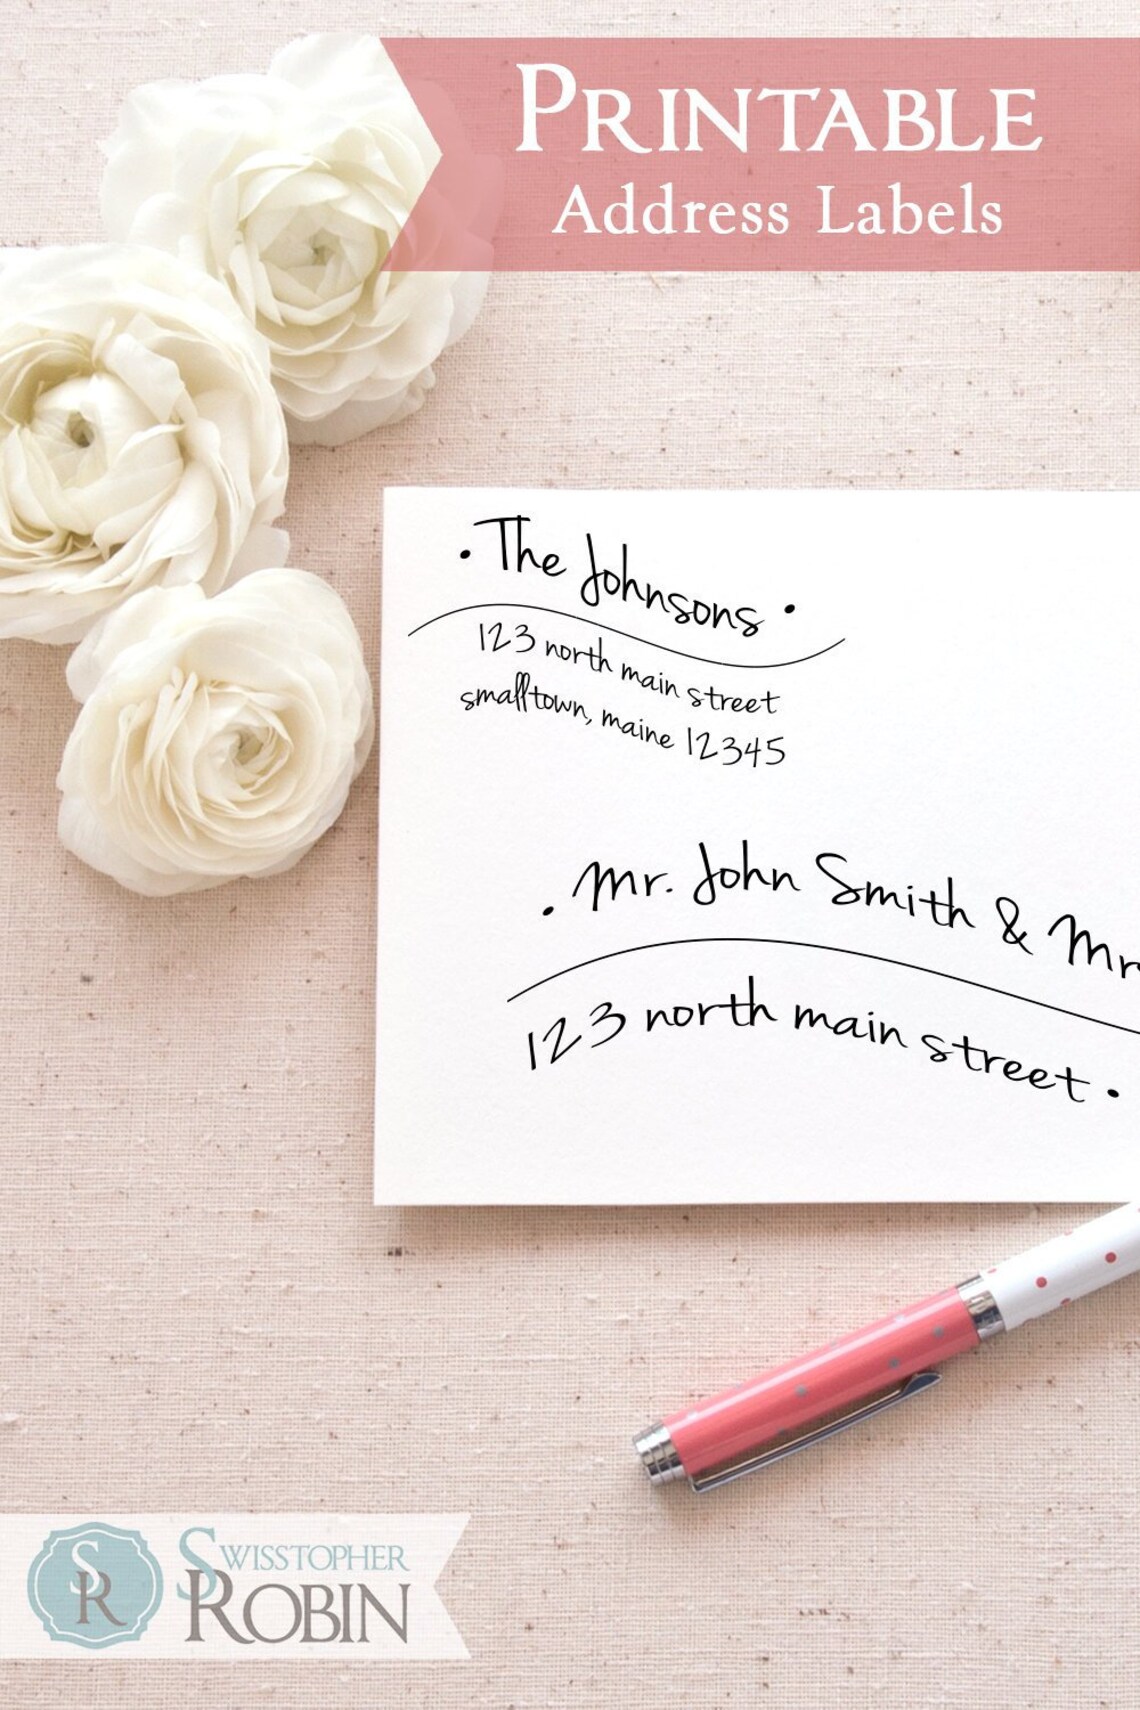 PRINTABLE
Address Labels
• The Johnsons •
123 north main street
smalltown, maine 12345
• mr. John Smith & Mr
123 north main street •
SR
SWISSTOPHER
ROBIN